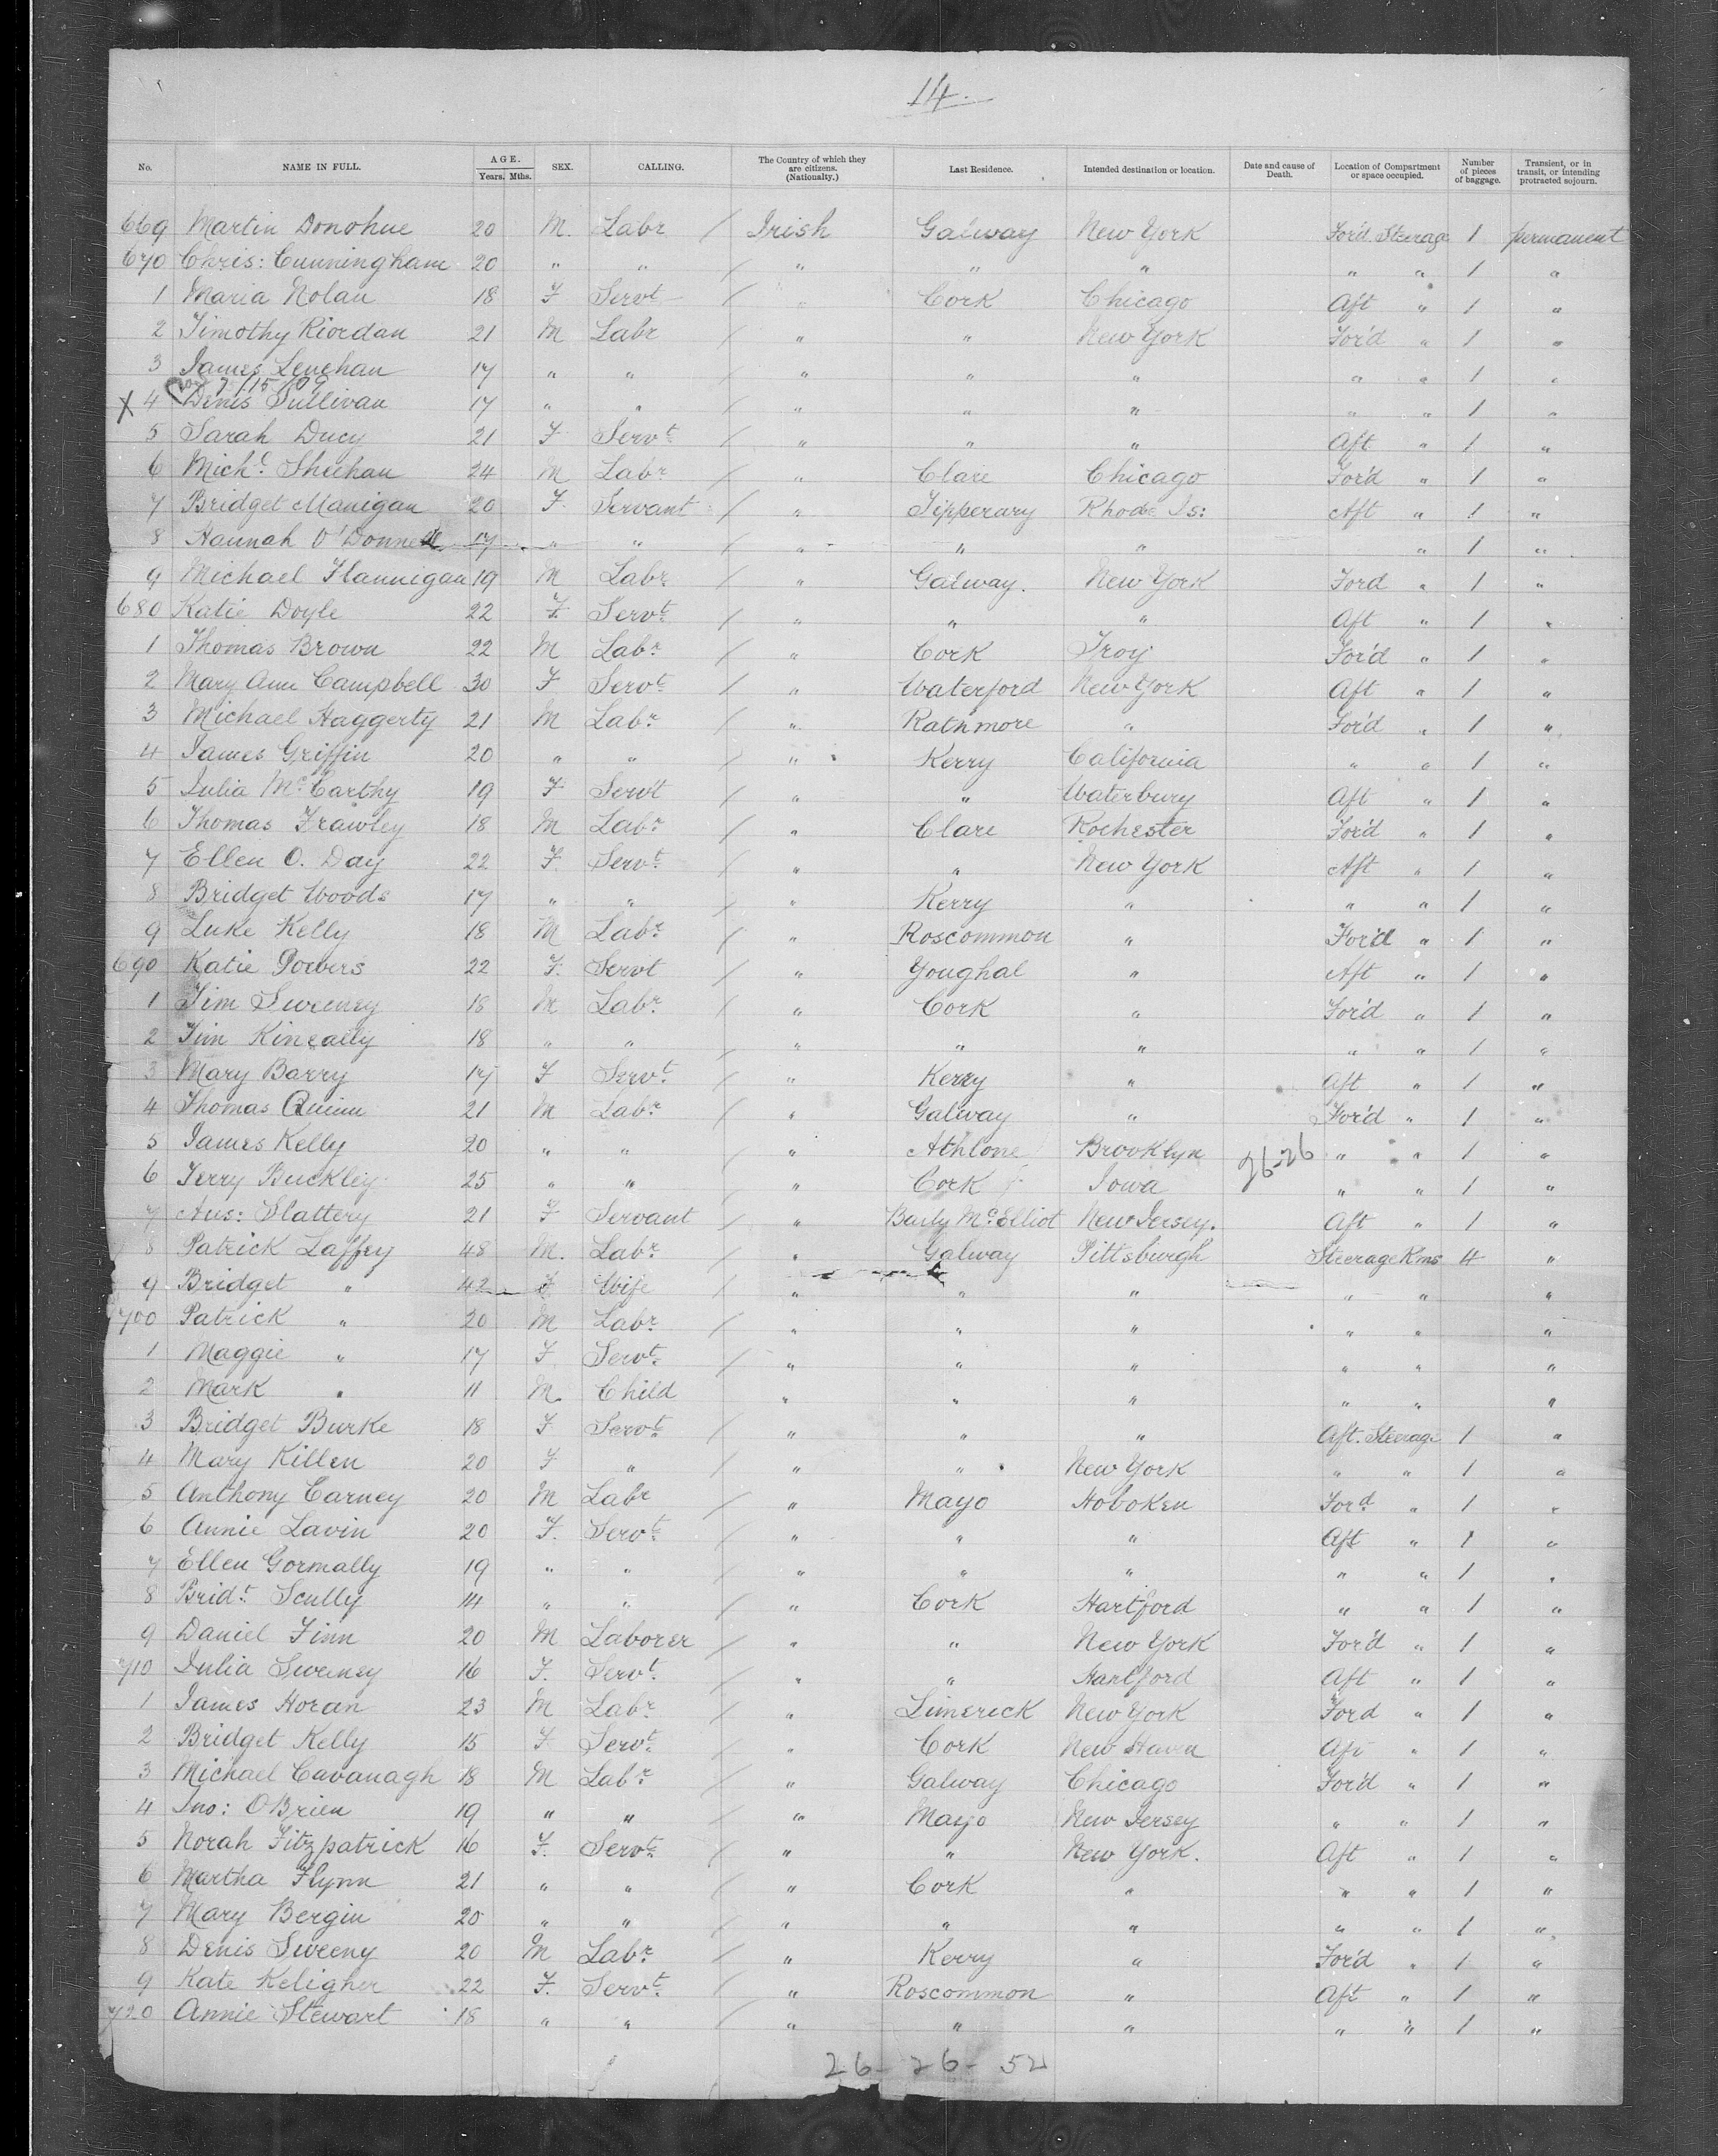 14.
No. NAME IN FULL. AGE. Years. Mths. SEX. CALLING. The Country of which they are citizens. (Nationalty.) Last Residence. Intended destination or location. Date and cause of Death. Location of Compartment or space occupied. Number of pieces of baggage. Transient, or in transit, or intending protracted sojourn.
669 Martin Donohue 20 M. Labr / Irish Galway New York For'd Steerage 1 permanent
670 Chris: Cunningham 20 " " / " " " " " 1 "
1 Maria Nolan 18 F Servt / " Cork Chicago Aft " 1 "
2 Timothy Riordan 21 M Labr / " " New York For'd " 1 "
3 James Lenehan 17 " " / " " " " " 1 "
7/15/09
X 4 Denis Sullivan 17 " " / " " " " " 1 "
5 Sarah Ducy 21 F Servt / " " " Aft " 1 "
6 Michl. Sheehan 24 M Labr / " Clare Chicago For'd " 1 "
7 Bridget Manigan 20 F Servant / " Tipperary Rhode Is: Aft " 1 "
8 Hannah O'Donnell 17 " " / " " " " 1 "
9 Michael Flannigan 19 M Labr / " Galway. New York Ford " 1 "
680 Katie Doyle 22 F. Servt / " " " Aft " 1 "
1 Thomas Brown 22 M Labr / " Cork Troy For'd " 1 "
2 Mary Ann Campbell 30 F Servt / " Waterford New York Aft " 1 "
3 Michael Haggerty 21 M Labr / " Rathmore " For'd " 1 "
4 James Griffin 20 " " / " Kerry California " " 1 "
5 Julia McCarthy 19 F Servt / " " Waterbury Aft " 1 "
6 Thomas Frawley 18 M Labr / " Clare Rochester For'd " 1 "
7 Ellen O. Day 22 F. Servt / " " New York Aft " 1 "
8 Bridget Woods 17 " " / " Kerry " " " 1 "
9 Luke Kelly 18 M Labr / " Roscommon " For'd " 1 "
690 Katie Powers 22 F. Servt / " Youghal " Aft " 1 "
1 Tim Sweeney 18 M Labr / " Cork " For'd " 1 "
2 Jim Kineally 18 " " / " " " " " 1 "
3 Mary Barry 17 F Servt. / " Kerry " Aft " 1 "
4 Thomas Quinn 21 M Labr / " Galway " For'd " 1 "
5 James Kelly 20 " " / " Athlone Brooklyn 26-26 " " 1 "
6 Jerry Buckley 25 " " / " Cork Iowa " " 1 "
7 Aus: Slattery 21 F Servant / " McElliot New Jersey. Aft " 1 "
8 Patrick Laffey 48 M. Labr / " Galway Pittsburgh Steerage Rms 4 "
9 Bridget " 42 F Wife / " " " " " "
700 Patrick " 20 M Labr / " " " " " "
1 Maggie " 17 F Servt. / " " " " " "
2 Mark " 11 M. Child " " " " " "
3 Bridget Burke 18 F Servt / " " " Aft. Steerage 1 "
4 Mary Killen 20 F " / " " New York " " 1 "
5 Anthony Carney 20 M Labr / " Mayo Hoboken Ford " 1 "
6 Annie Lavin 20 F. Servt / " " " Aft " 1 "
7 Ellen Gormally 19 " " / " " " " " 1 "
8 Bridt. Scully 14 " " / " Cork Hartford " " 1 "
9 Daniel Finn 20 M Laborer / " " New York For'd " 1 "
710 Julia Sweeney 16 F. Servt / " " Hartford Aft " 1 "
1 James Horan 23 M Labr / " Limerick New York Ford " 1 "
2 Bridget Kelly 15 F Servt / " Cork New Haven Aft " 1 "
3 Michael Cavanagh 18 M Labr / " Galway Chicago For'd " 1 "
4 Jno: O'Brien 19 " " / " Mayo New Jersey " " 1 "
5 Norah Fitzpatrick 16 F. Servt / " " New York. Aft " 1 "
6 Martha Flynn 21 " " / " Cork " " " 1 "
7 Mary Bergin 20 " " / " " " " " 1 "
8 Denis Sweeny 20 M Labr / " Kerry " For'd " 1 "
9 Kate Keligher 22 F. Servt / " Roscommon " Aft " 1 "
720 Annie Stewart 18 " " / " " " " " 1 "
26- 26- 52